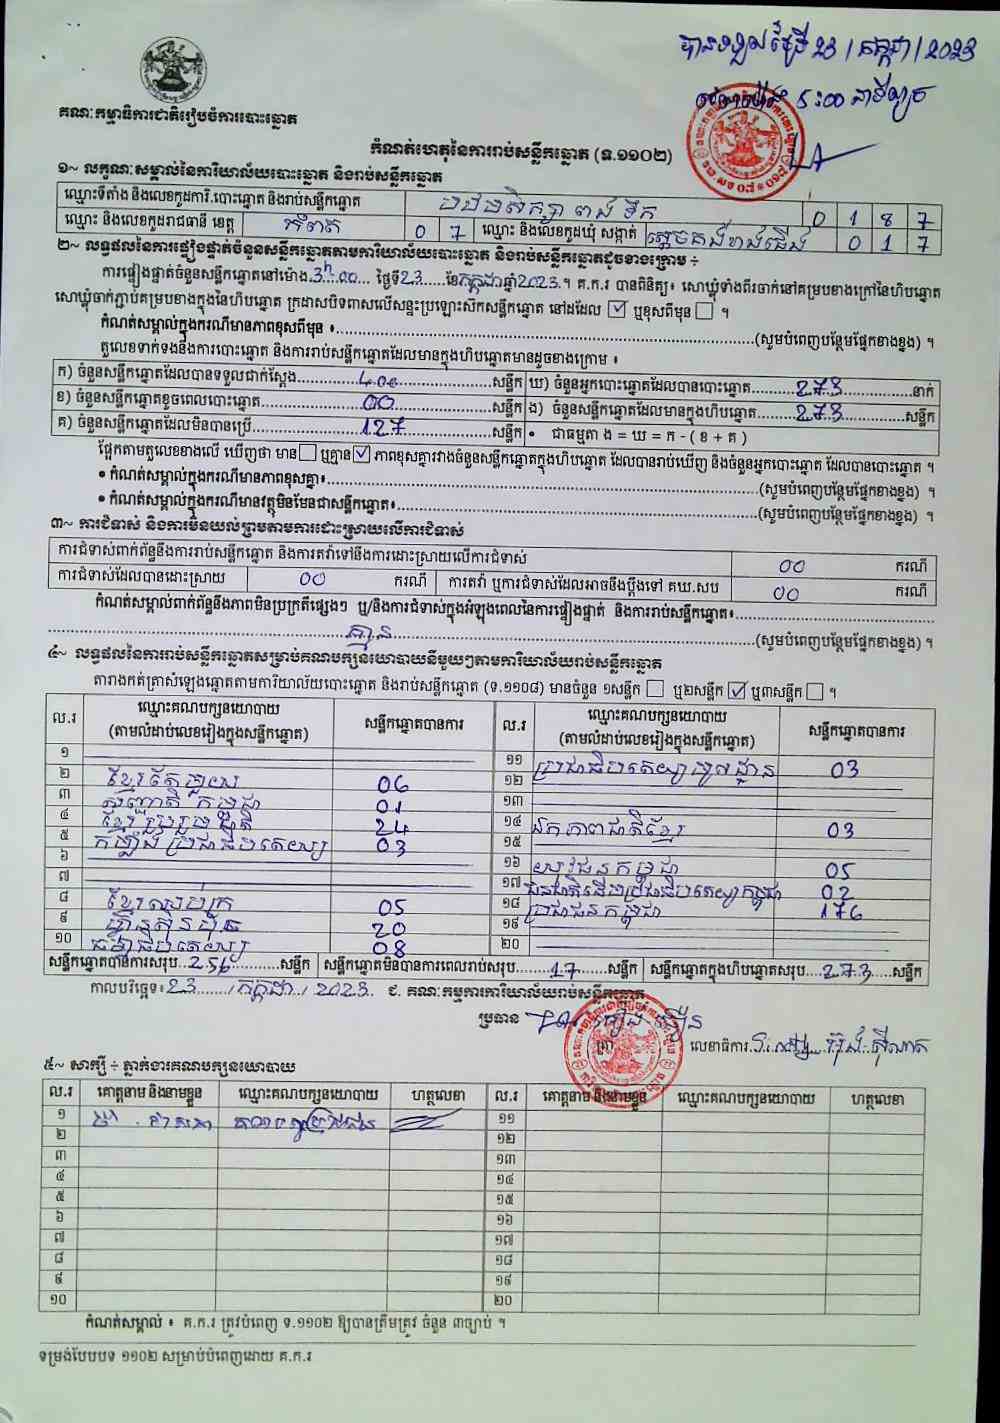 បានទទួលថ្ងៃទី 23 / កក្កដា / 2023
5:00 នាទីល្ងាច
គណៈកម្មាធិការជាតិរៀបចំការបោះឆ្នោត
កំណត់ហេតុនៃការរាប់សន្លឹកឆ្នោត (ទ.១១០២)
១~ លក្ខណៈសម្គាល់នៃការិយាល័យបោះឆ្នោត និងរាប់សន្លឹកឆ្នោត
ឈ្មោះទីតាំង និងលេខកូដការិ.បោះឆ្នោត និងរាប់សន្លឹកឆ្នោត 0 1 8 7
ឈ្មោះ និងលេខកូដរាជធានី ខេត្ត កំពត 0 7 ឈ្មោះ និងលេខកូដឃុំ សង្កាត់ ស្តេចគង់ខាងជើង 0 1 7
២~ លទ្ធផលនៃការផ្ទៀងផ្ទាត់ចំនួនសន្លឹកឆ្នោតតាមការិយាល័យបោះឆ្នោត និងរាប់សន្លឹកឆ្នោតដូចខាងក្រោម ÷
ការផ្ទៀងផ្ទាត់ចំនួនសន្លឹកឆ្នោតនៅម៉ោង 3h 00 ថ្ងៃទី 23 ខែ កក្កដា ឆ្នាំ 2023 ។ គ.ក.រ បានពិនិត្យ៖ សោឃ្លុំទាំងពីរចាក់នៅគម្របខាងក្រៅនៃហិបឆ្នោត
សោឃ្លុំចាក់ភ្ជាប់គម្របខាងក្នុងនៃហិបឆ្នោត ក្រដាសបិទពាសលើសន្ទះប្រឡោះសិកសន្លឹកឆ្នោត នៅដដែល ☑ ឬខុសពីមុន ☐ ។
កំណត់សម្គាល់ក្នុងករណីមានភាពខុសពីមុន ៖ (សូមបំពេញបន្ថែមផ្នែកខាងខ្នង) ។
តួលេខទាក់ទងនឹងការបោះឆ្នោត និងការរាប់សន្លឹកឆ្នោតដែលមានក្នុងហិបឆ្នោតមានដូចខាងក្រោម ៖
ក) ចំនួនសន្លឹកឆ្នោតដែលបានទទួលជាក់ស្តែង 400 សន្លឹក ឃ) ចំនួនអ្នកបោះឆ្នោតដែលបានបោះឆ្នោត 273 នាក់
ខ) ចំនួនសន្លឹកឆ្នោតខូចពេលបោះឆ្នោត 00 សន្លឹក ង) ចំនួនសន្លឹកឆ្នោតដែលមានក្នុងហិបឆ្នោត 273 សន្លឹក
គ) ចំនួនសន្លឹកឆ្នោតដែលមិនបានប្រើ 127 សន្លឹក • ជាធម្មតា ង = ឃ = ក - ( ខ + គ )
ផ្អែកតាមតួលេខខាងលើ ឃើញថា មាន ☐ ឬគ្មាន ☑ ភាពខុសគ្នារវាងចំនួនសន្លឹកឆ្នោតក្នុងហិបឆ្នោត ដែលបានរាប់ឃើញ និងចំនួនអ្នកបោះឆ្នោត ដែលបានបោះឆ្នោត ។
• កំណត់សម្គាល់ក្នុងករណីមានភាពខុសគ្នា៖ (សូមបំពេញបន្ថែមផ្នែកខាងខ្នង) ។
• កំណត់សម្គាល់ក្នុងករណីមានវត្ថុមិនមែនជាសន្លឹកឆ្នោត៖ (សូមបំពេញបន្ថែមផ្នែកខាងខ្នង) ។
៣~ ការជំទាស់ និងការមិនយល់ព្រមតាមការដោះស្រាយលើការជំទាស់
ការជំទាស់ពាក់ព័ន្ធនឹងការរាប់សន្លឹកឆ្នោត និងការតវ៉ាទៅនឹងការដោះស្រាយលើការជំទាស់ 00 ករណី
ការជំទាស់ដែលបានដោះស្រាយ 00 ករណី ការតវ៉ា ឬការជំទាស់ដែលអាចនឹងប្តឹងទៅ គឃ.សប 00 ករណី
កំណត់សម្គាល់ពាក់ព័ន្ធនឹងភាពមិនប្រក្រតីផ្សេងៗ ឬ/និងការជំទាស់ក្នុងអំឡុងពេលនៃការផ្ទៀងផ្ទាត់ និងការរាប់សន្លឹកឆ្នោត៖
គ្មាន (សូមបំពេញបន្ថែមផ្នែកខាងខ្នង) ។
៤~ លទ្ធផលនៃការរាប់សន្លឹកឆ្នោតសម្រាប់គណបក្សនយោបាយនីមួយៗតាមការិយាល័យរាប់សន្លឹកឆ្នោត
តារាងកត់ត្រាសំឡេងឆ្នោតតាមការិយាល័យបោះឆ្នោត និងរាប់សន្លឹកឆ្នោត (ទ.១១០៨) មានចំនួន ១សន្លឹក ☐ ឬ២សន្លឹក ☑ ឬ៣សន្លឹក ☐ ។
ល.រ ឈ្មោះគណបក្សនយោបាយ (តាមលំដាប់លេខរៀងក្នុងសន្លឹកឆ្នោត) សន្លឹកឆ្នោតបានការ ល.រ ឈ្មោះគណបក្សនយោបាយ (តាមលំដាប់លេខរៀងក្នុងសន្លឹកឆ្នោត) សន្លឹកឆ្នោតបានការ
១ ១១ ប្រជាធិបតេយ្យមូលដ្ឋាន 03
២ ខ្មែរតែមួយ 06 ១២
៣ សញ្ជាតិ កម្ពុជា 01 ១៣
៤ ខ្មែររួបរួមជាតិ 24 ១៤ ឯកភាពជាតិខ្មែរ 03
៥ កម្លាំង ប្រជាធិបតេយ្យ 03 ១៥
៦ ១៦ យុវជនកម្ពុជា 05
៧ ១៧ ជនជាតិដើមប្រជាធិបតេយ្យកម្ពុជា 02
៨ ខ្មែរឈប់ក្រ 05 ១៨ ប្រជាជនកម្ពុជា 176
៩ ហ្វ៊ុនស៊ិនប៉ិច 20 ១៩
១០ ធម្មាធិបតេយ្យ 08 ២០
សន្លឹកឆ្នោតបានការសរុប 256 សន្លឹក សន្លឹកឆ្នោតមិនបានការពេលរាប់សរុប 17 សន្លឹក សន្លឹកឆ្នោតក្នុងហិបឆ្នោតសរុប 273 សន្លឹក
កាលបរិច្ឆេទ៖ 23 / កក្កដា / 2023 ជ. គណៈកម្មការការិយាល័យរាប់សន្លឹកឆ្នោត
ប្រធាន
លេខាធិការ
៥~ សាក្សី ÷ ភ្នាក់ងារគណបក្សនយោបាយ
ល.រ គោត្តនាម និងនាមខ្លួន ឈ្មោះគណបក្សនយោបាយ ហត្ថលេខា ល.រ គោត្តនាម និងនាមខ្លួន ឈ្មោះគណបក្សនយោបាយ ហត្ថលេខា
១ គណបក្សប្រជាជន ១១
២ ១២
៣ ១៣
៤ ១៤
៥ ១៥
៦ ១៦
៧ ១៧
៨ ១៨
៩ ១៩
១០ ២០
កំណត់សម្គាល់ ៖ គ.ក.រ ត្រូវបំពេញ ទ.១១០២ ឱ្យបានត្រឹមត្រូវ ចំនួន ៣ច្បាប់ ។
ទម្រង់បែបបទ ១១០២ សម្រាប់បំពេញដោយ គ.ក.រ